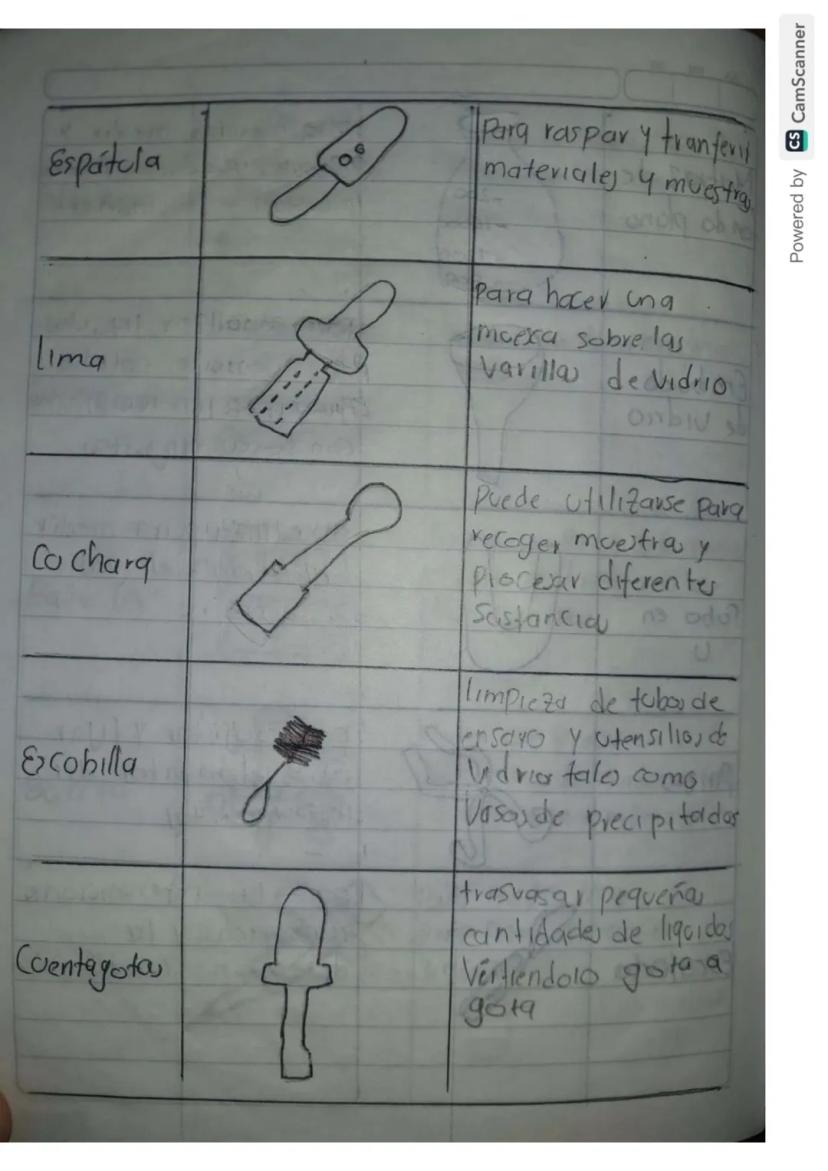 Espátula
Para raspar y tranferir
materiales y muestras
lima
Para hacer una
muexa sobre las
Varillas de Vidrio
Cuchara
Puede utilizarse para
recoger muestras y
Procesar diferentes
Sustancias
Escobilla
limpieza de tubos de
ensayo y utensilios de
Vidrios tales como
Vasos de precipitados
Cuentagotas
trasvasar pequeñas
cantidades de liquidos
Virtiendolo gota a
gota
Powered by CS CamScanner